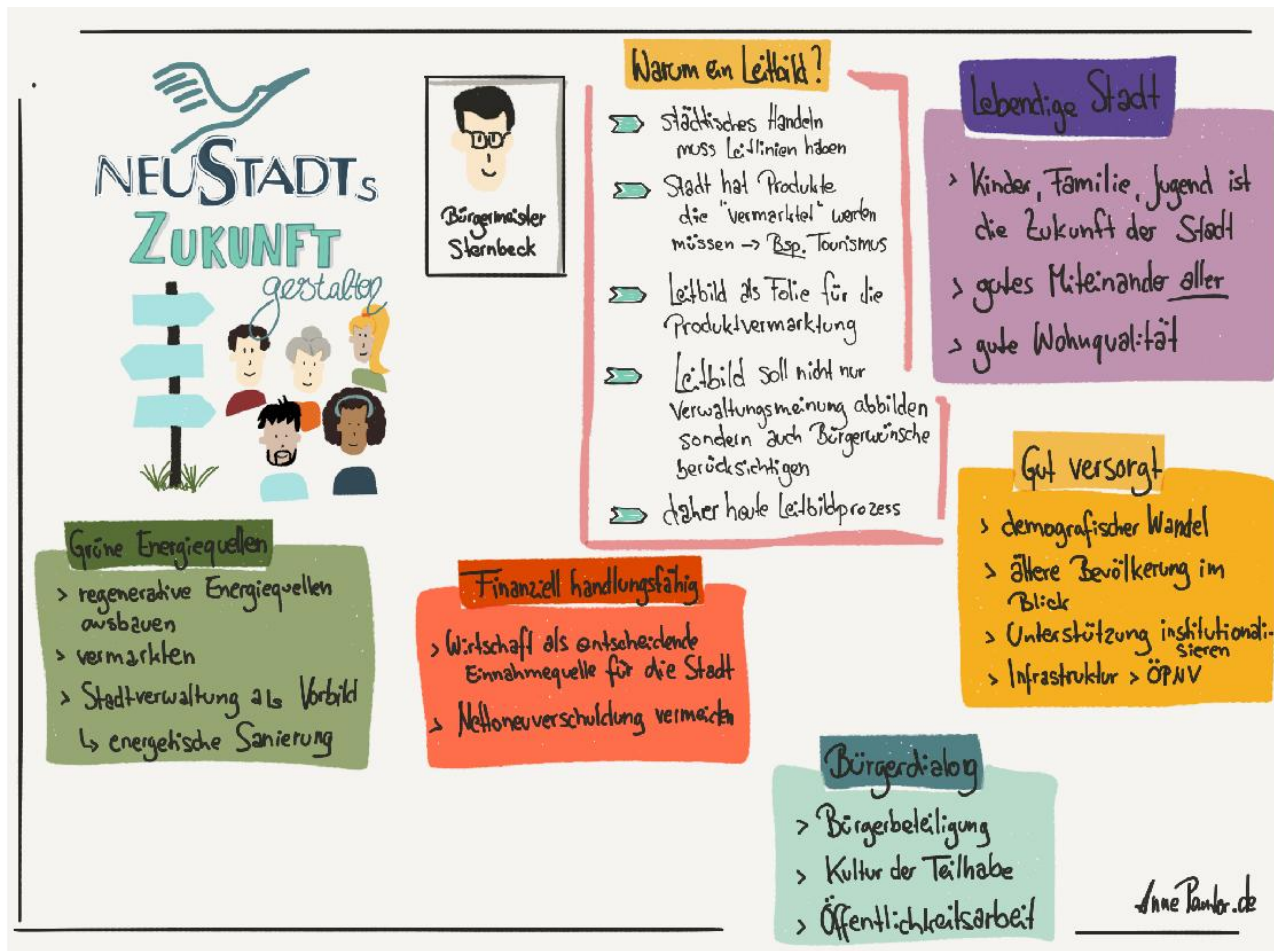 NEUSTADTs
ZUKUNFT
gestalten
Bürgermeister
Sternbeck
Warum ein Leitbild?
städtisches Handeln
muss Leitlinien haben
Stadt hat Produkte
die "vermarktet" werden
müssen -> Bsp. Tourismus
Leitbild als Folie für die
Produktvermarktung
Leitbild soll nicht nur
Verwaltungsmeinung abbilden
sondern auch Bürgerwünsche
berücksichtigen
daher heute Leitbildprozess
Lebendige Stadt
> Kinder, Familie, Jugend ist
die Zukunft der Stadt
> gutes Miteinander aller
> gute Wohnqualität
Gut versorgt
> demografischer Wandel
> ältere Bevölkerung im
Blick
> Unterstützung institutionali-
sieren
> Infrastruktur > ÖPNV
Grüne Energiequellen
> regenerative Energiequellen
ausbauen
> vermarkten
> Stadtverwaltung als Vorbild
↳ energetische Sanierung
Finanziell handlungsfähig
> Wirtschaft als entscheidende
Einnahmequelle für die Stadt
> Nettoneuverschuldung vermeiden
Bürgerdialog
> Bürgerbeteiligung
> Kultur der Teilhabe
> Öffentlichkeitsarbeit